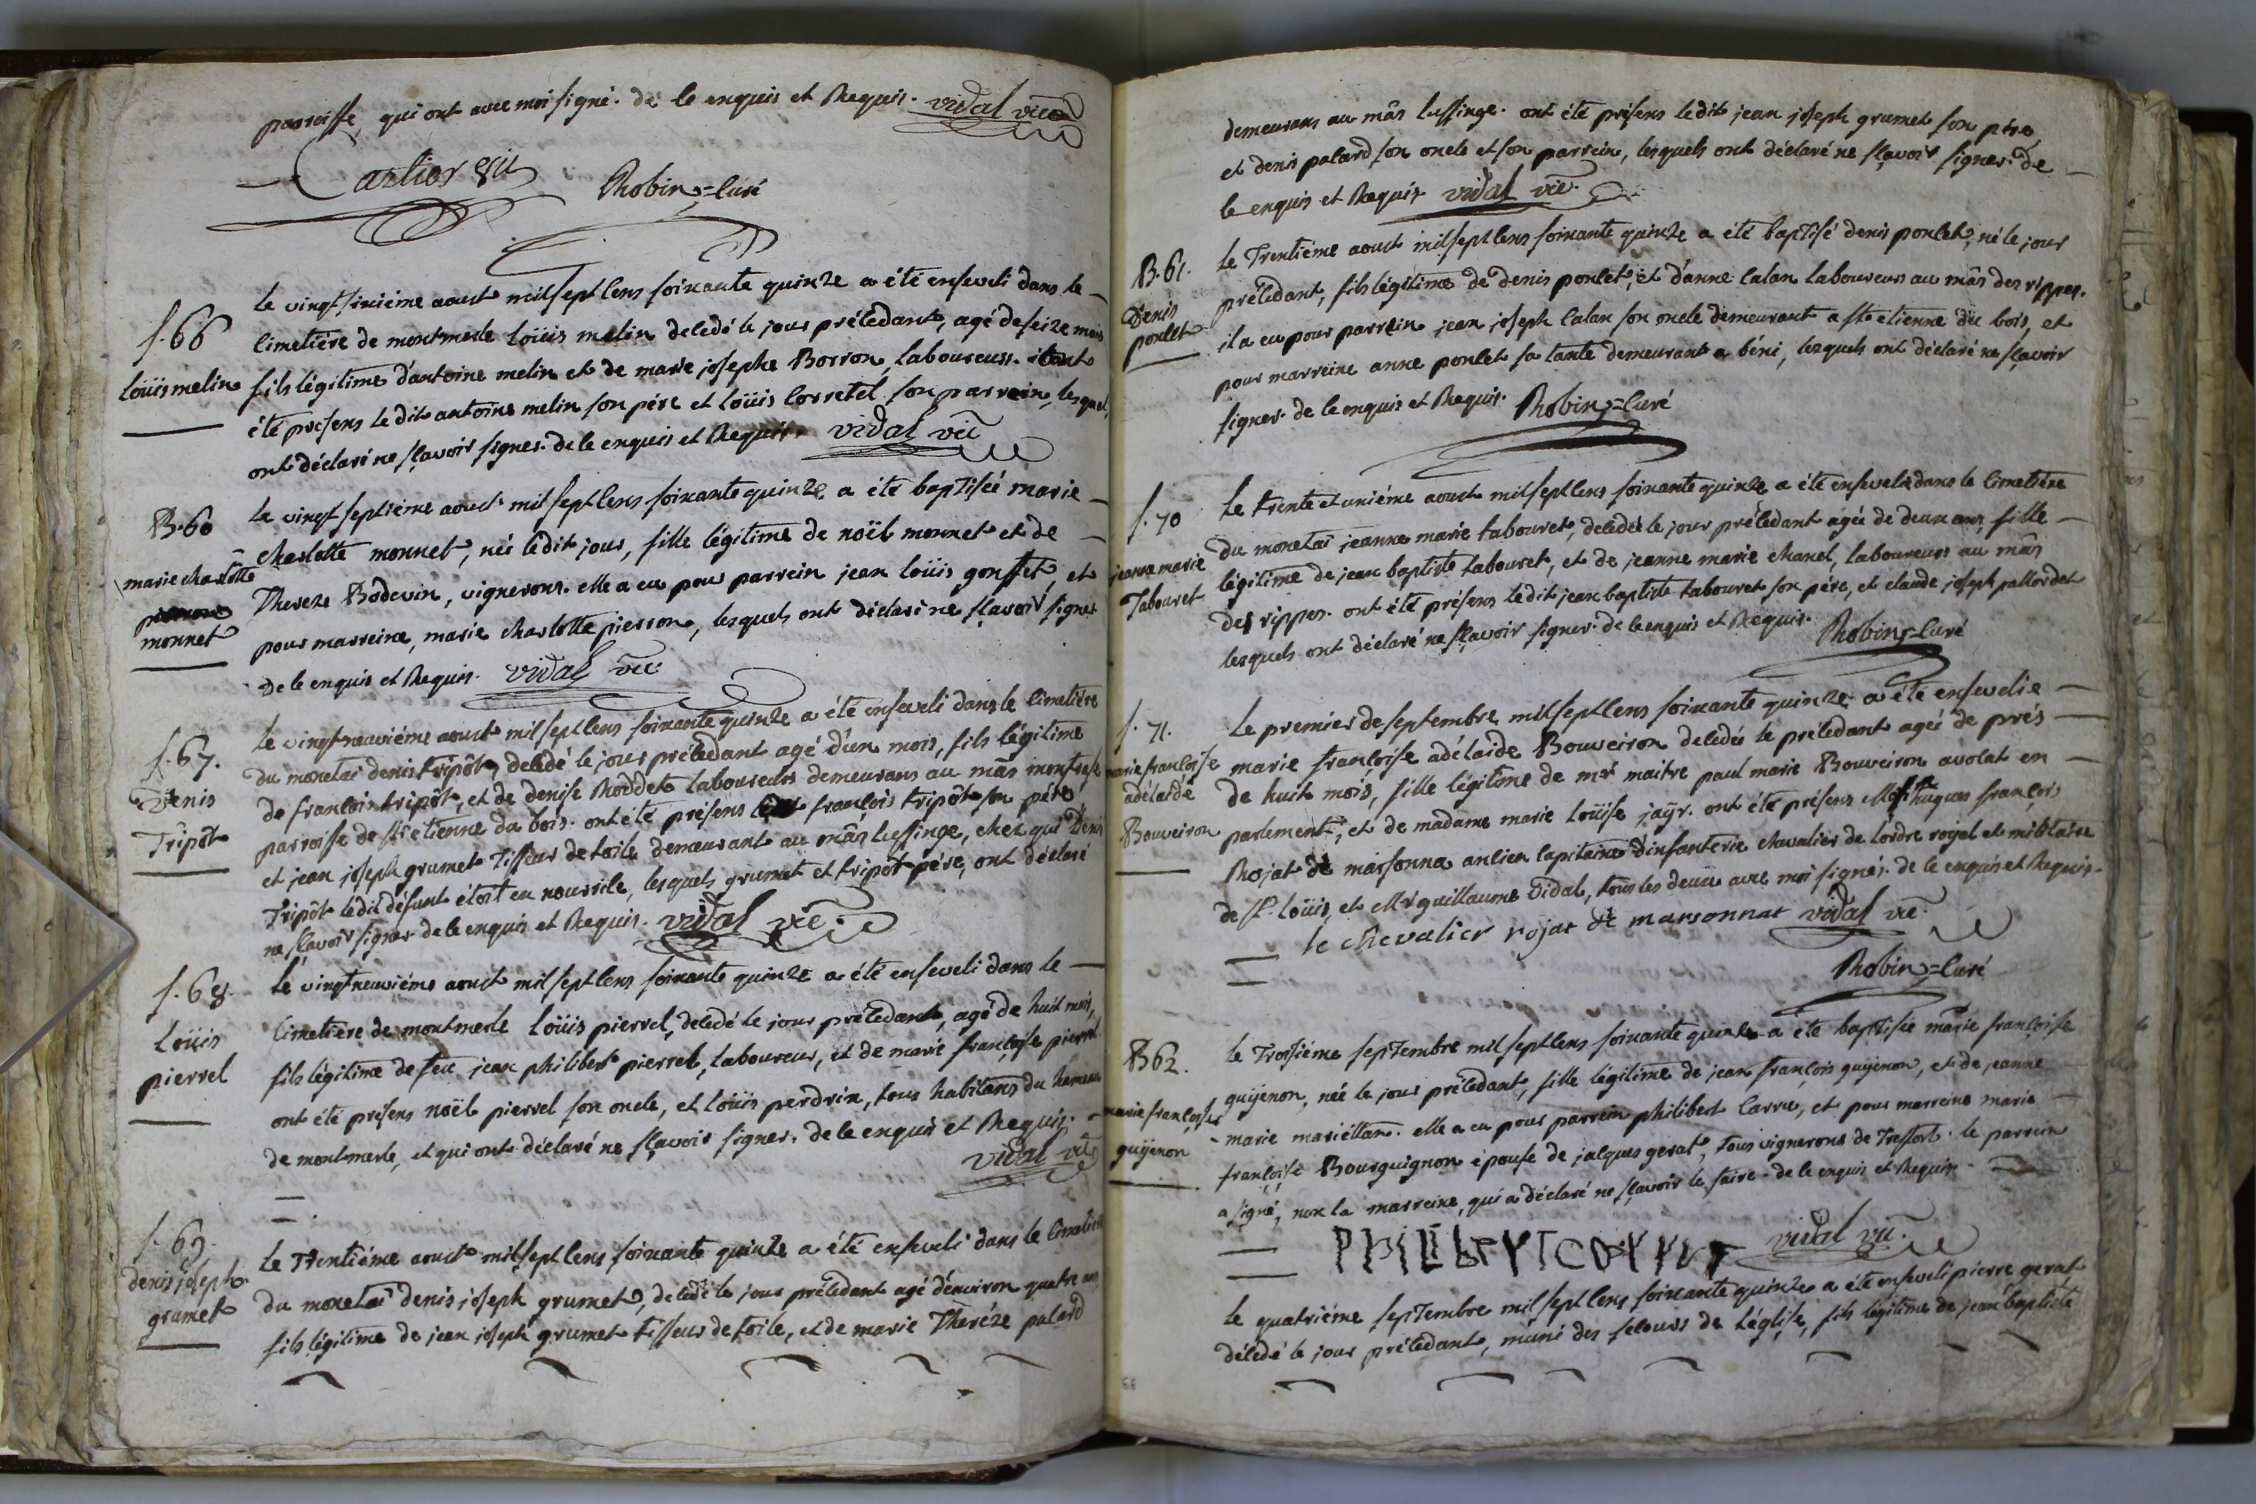 parroisse, qui ont avec moi signé. de le enquis et Requis. vidal vic
Cartier
Robin=Curé
S. 66
Loüis melin
Le vingt sixiéme aoust mil sept cens soixante quinze a été enseveli dans le
cimetière de montmerle Loüis melin decedé le jour précedant, agé de seize mois
fils légitime d'antoine melin et de marie josephe Borron, laboureurs. ont
été présens ledit antoine melin son pére et Loüis Corretel son parrein, lesquels
ont déclaré ne sçavoir signer. de le enquis et Requis. vidal vic
B. 60
marie charlotte
monnet
Le vingt septiéme aoust mil sept cens soixante quinze a été baptisée marie
charlotte monnet, née ledit jour, fille légitime de noël monnet et de
Thereze Bodevin, vignerons. elle a eu pour parrein jean loüis gonffet, et
pour marreine, marie charlotte pierron, lesquels ont déclaré ne sçavoir signer
de le enquis et Requis. vidal vic
S. 67.
Denis
Tripôt
Le vingt neuviéme aoust mil sept cens soixante quinze a été enseveli dans le cimetière
du monetai denis tripôt, decedé le jour précedant agé d'un mois, fils légitime
de francois tripôt, et de denise Roddet laboureurs demeurans au mâs
parroisse de st etienne du bois. ont été présens françois tripôt son pére
et jean joseph grumet Tisseur de toile demeurant au mâs lussinge, chez qui Denis
Tripôt ledit défunt étoit en nourrice, lesquels grumet et tripôt pére, ont déclaré
ne sçavoir signer de le enquis et Requis. vidal vic.
S. 68.
Loüis
pierrel
Le vingt neuviéme aoust mil sept cens soixante quinze a été enseveli dans le
cimetière de montmerle Loüis pierrel, decedé le jour précedant, agé de huit mois,
fils légitime de feu jean philibert pierrel, laboureur, et de marie françoise pierrel
ont été présens noël pierrel son oncle, et loüis perdrix, tous habitans du hameau
de montmerle, et qui ont déclaré ne sçavoir signer. de le enquis et Requis.
vidal vic
S. 69.
denis joseph
grumet
Le Trentiéme aoust mil sept cens soixante quinze a été enseveli dans le cimetière
du monetai denis joseph grumet, decedé le jour précedant agé d'environ quatre ans
fils légitime de jean joseph grumet tisseur de toile, et de marie Theréze palard
demeurans au mâs lussinge. ont été présens ledit jean joseph grumet son pére
et denis palard son oncle et son parrein, lesquels ont déclaré ne sçavoir signer. de
le enquis et Requis vidal vic.
B. 61.
Denis
poncet
Le Trentiéme aoust mil sept cens soixante quinze a été baptisé denis poncet, né le jour
précedant, fils légitime de denis poncet, et d'anne calan laboureurs au mâs des rippes.
il a eu pour parrein jean joseph calan son oncle demeurant a st etienne du bois, et
pour marreine anne poncet sa tante demeurant a béni, lesquels ont déclaré ne sçavoir
signer. de le enquis et Requis. Robin=Curé
S. 70
jeanne marie
Tabouret
Le trente et uniéme aoust mil sept cens soixante quinze a été ensevelie dans le cimetière
du monetai jeanne marie tabouret, decedée le jour précedant agée de deux ans, fille
légitime de jean baptiste tabouret, et de jeanne marie chanel, laboureurs au mâs
des rippes. ont été présens ledit jean baptiste tabouret son pére, et claude joseph pallordet
lesquels ont déclaré ne sçavoir signer. de le enquis et Requis. Robin=Curé
S. 71.
marie françoise
adélaïde
Bouveiron
Le premier de septembre mil sept cens soixante quinze a été ensevelie
marie françoise adélaide Bouveiron decedée le précedant agée de prés
de huit mois, fille légitime de mre maitre paul marie Bouveiron avocat en
parlement, et de madame marie Loüise jaÿr. ont été présens Mre hugues françois
Rojat de marsonna ancien Capitaine d'infanterie chevalier de l'ordre royal et militaire
de St. Loüis, et Mr guillaume Vidal, tous les deux avec moi signés. de le enquis et Requis.
le chevalier rojat de marsonnat vidal vic.
Robin=Curé
B. 62.
marie françoise
guÿenon
Le Troisiéme septembre mil sept cens soixante quinze a été baptisée marie françoise
guÿenon, née le jour précedant, fille légitime de jean françois guÿenon, et de jeanne
marie mariéllan. elle a eu pour parrein philibert Carru, et pour marreine marie
françoise Bourguignon épouse de jacques gerat, tous vignerons de Treffort. le parrein
a signé, non la marreine, qui a déclaré ne sçavoir le faire. de le enquis et Requis.
vidal vic.
Le quatriéme septembre mil sept cens soixante quinze a été enseveli pierre gerat
décedé le jour précedant, muni des secours de l'église, fils légitime de jean baptiste